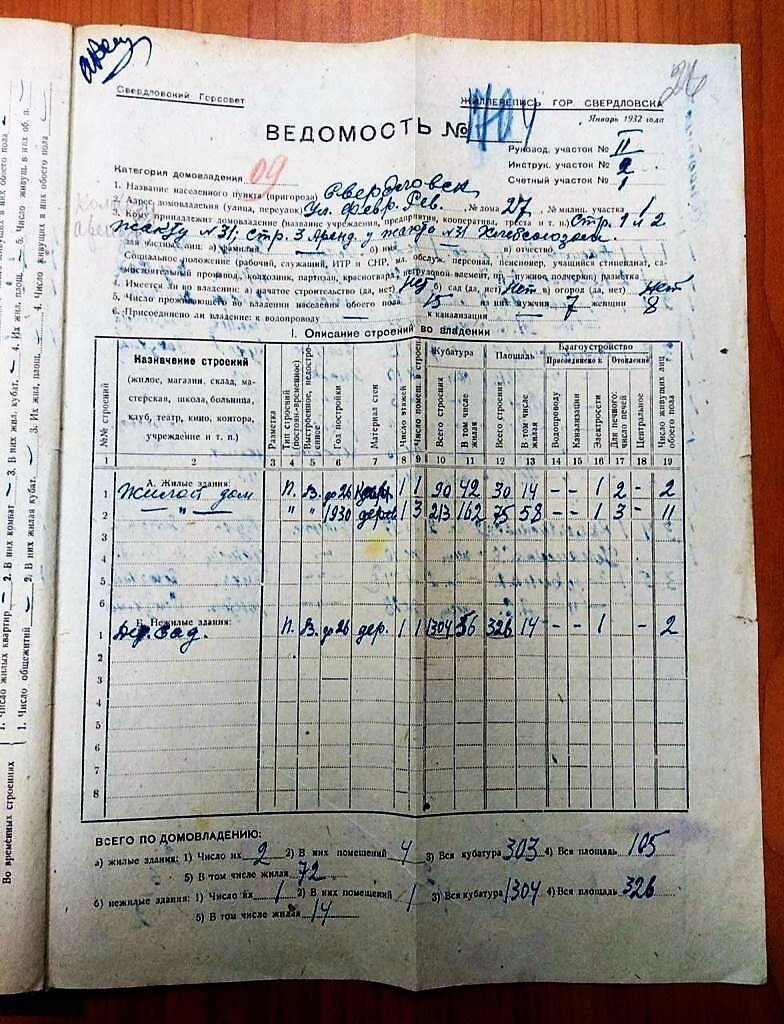 26
Свердловский Горсовет
ЖИЛПЕРЕПИСЬ ГОР. СВЕРДЛОВСКА
Январь 1932 года
ВЕДОМОСТЬ №
Руковод. участок № II
Инструк. участок № 2
Счетный участок № 1
Категория домовладения 09
1. Название населенного пункта (пригорода) Свердловск
2. Адрес домовладения (улица, переулок) Ул. Февр. Рев. № дома 27, № милиц. участка 1
3. Кому принадлежит домовладение (название учреждения, предприятия, кооператива, треста и т. п.) Стр. 1 и 2
Жакту №31; Стр. 3 Аренд. у жакта №31
для частных лиц: а) фамилия б) имя в) отчество
Социальное положение (рабочий, служащий, ИТР и СНР, мл. обслуж. персонал, пенсионер, учащийся стипендиат, са-
мостоятельный производ., колхозник, партизан, красногвард., нетрудовой элемент, пр., нужное подчеркн.) разметка
4. Имеется ли во владении: а) начатое строительство (да, нет) Нет б) сад (да, нет) Нет в) огород (да, нет) Нет
5. Число проживающего во владении населения обоего пола 15 из них мужчин 7 женщин 8
6. Присоединено ли владение: к водопроводу — к канализации —
I. Описание строений во владении
№№ строений
Назначение строений
(жилое, магазин, склад, ма-
стерская, школа, больница,
клуб, театр, кино, контора,
учреждение и т. п.)
Разметка
Тип строений (постоян.-временное)
Выстроенное, недостро-
енное
Год постройки
Материал стен
Число этажей
Число помещ. в строен.
Кубатура
Всего строения
В том числе жилая
Площадь
Всего строения
В том числе жилая
Благоустройство
Присоединено к
Водопроводу
Канализации
Электросети
Отопление
Для печного: число печей
Центральное
Число живущих лиц обоего пола
1 2 3 4 5 6 7 8 9 10 11 12 13 14 15 16 17 18 19
А. Жилые здания:
1 Жилой дом П. В. до 26 1 1 90 42 30 14 – – 1 2 – 2
2 — " — " " 1930 дерев 1 3 213 162 75 58 – – 1 3 – 11
3
4
5
6
Б. Нежилые здания:
1 П. В. до 26 дер. 1 1 1304 56 326 14 – – 1 – 2
2
3
4
5
6
7
8
ВСЕГО ПО ДОМОВЛАДЕНИЮ:
а) жилые здания: 1) Число их 2 2) В них помещений 4 3) Вся кубатура 303 4) Вся площадь 105
5) В том числе жилая 72
б) нежилые здания: 1) Число их 1 2) В них помещений 1 3) Вся кубатура 1304 4) Вся площадь 326
5) В том числе жилая 14
1. Число жилых квартир — 2. В них комнат — 3. В них жил. кубат. — 4. Их жил. площ. — 5. Число живущ. в них об. п.
Во временных строениях
1. Число общежитий — 2. В них жилая кубат. — 3. Их жил. площ. — 4. Число живущих в них обоего пола